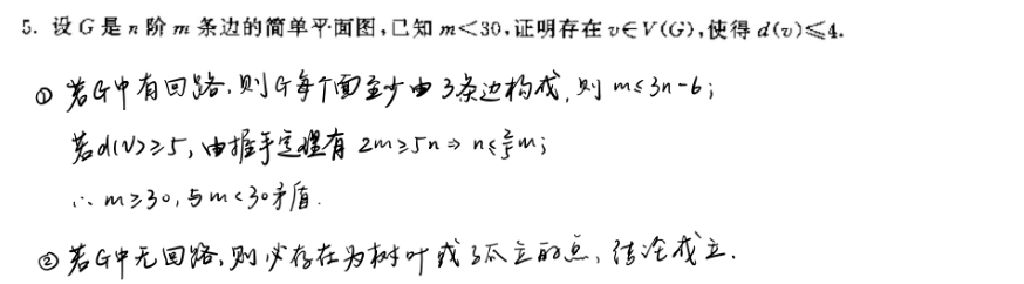 5. 设 G 是 n 阶 m 条边的简单平面图,已知 m<30,证明存在 v∈V(G),使得 d(v)≤4.
① 若G中有回路,则G每个面至少由3条边构成,则 m≤3n-6;
若d(v)≥5,由握手定理有 2m≥5n ⇒ n≤2/5m;
∴ m≥30,与m<30矛盾.
② 若G中无回路,则必存在为树叶或孤立的点,结论成立.